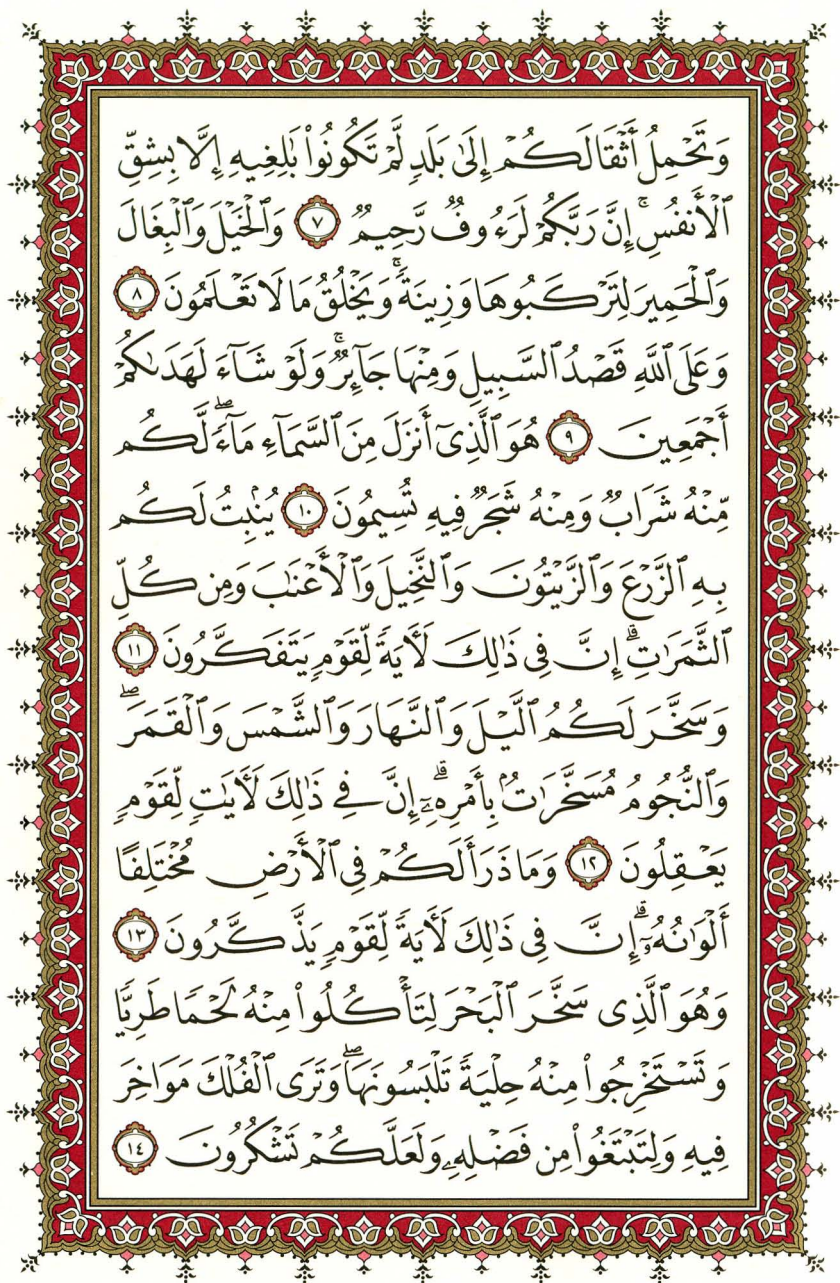 وَتَحْمِلُ أَثْقَالَكُمْ إِلَىٰ بَلَدٍ لَّمْ تَكُونُوا۟ بَٰلِغِيهِ إِلَّا بِشِقِّ
ٱلْأَنفُسِ ۚ إِنَّ رَبَّكُمْ لَرَءُوفٌ رَّحِيمٌ ٧ وَٱلْخَيْلَ وَٱلْبِغَالَ
وَٱلْحَمِيرَ لِتَرْكَبُوهَا وَزِينَةً ۚ وَيَخْلُقُ مَا لَا تَعْلَمُونَ ٨
وَعَلَى ٱللَّهِ قَصْدُ ٱلسَّبِيلِ وَمِنْهَا جَآئِرٌ ۚ وَلَوْ شَآءَ لَهَدَىٰكُمْ
أَجْمَعِينَ ٩ هُوَ ٱلَّذِىٓ أَنزَلَ مِنَ ٱلسَّمَآءِ مَآءً ۖ لَّكُم
مِّنْهُ شَرَابٌ وَمِنْهُ شَجَرٌ فِيهِ تُسِيمُونَ ١٠ يُنۢبِتُ لَكُم
بِهِ ٱلزَّرْعَ وَٱلزَّيْتُونَ وَٱلنَّخِيلَ وَٱلْأَعْنَٰبَ وَمِن كُلِّ
ٱلثَّمَرَٰتِ ۗ إِنَّ فِى ذَٰلِكَ لَـَٔايَةً لِّقَوْمٍ يَتَفَكَّرُونَ ١١
وَسَخَّرَ لَكُمُ ٱلَّيْلَ وَٱلنَّهَارَ وَٱلشَّمْسَ وَٱلْقَمَرَ ۖ
وَٱلنُّجُومُ مُسَخَّرَٰتٌۢ بِأَمْرِهِۦٓ ۗ إِنَّ فِى ذَٰلِكَ لَـَٔايَٰتٍ لِّقَوْمٍ
يَعْقِلُونَ ١٢ وَمَا ذَرَأَ لَكُمْ فِى ٱلْأَرْضِ مُخْتَلِفًا
أَلْوَٰنُهُۥٓ ۗ إِنَّ فِى ذَٰلِكَ لَـَٔايَةً لِّقَوْمٍ يَذَّكَّرُونَ ١٣
وَهُوَ ٱلَّذِى سَخَّرَ ٱلْبَحْرَ لِتَأْكُلُوا۟ مِنْهُ لَحْمًا طَرِيًّا
وَتَسْتَخْرِجُوا۟ مِنْهُ حِلْيَةً تَلْبَسُونَهَا ۖ وَتَرَى ٱلْفُلْكَ مَوَاخِرَ
فِيهِ وَلِتَبْتَغُوا۟ مِن فَضْلِهِۦ وَلَعَلَّكُمْ تَشْكُرُونَ ١٤